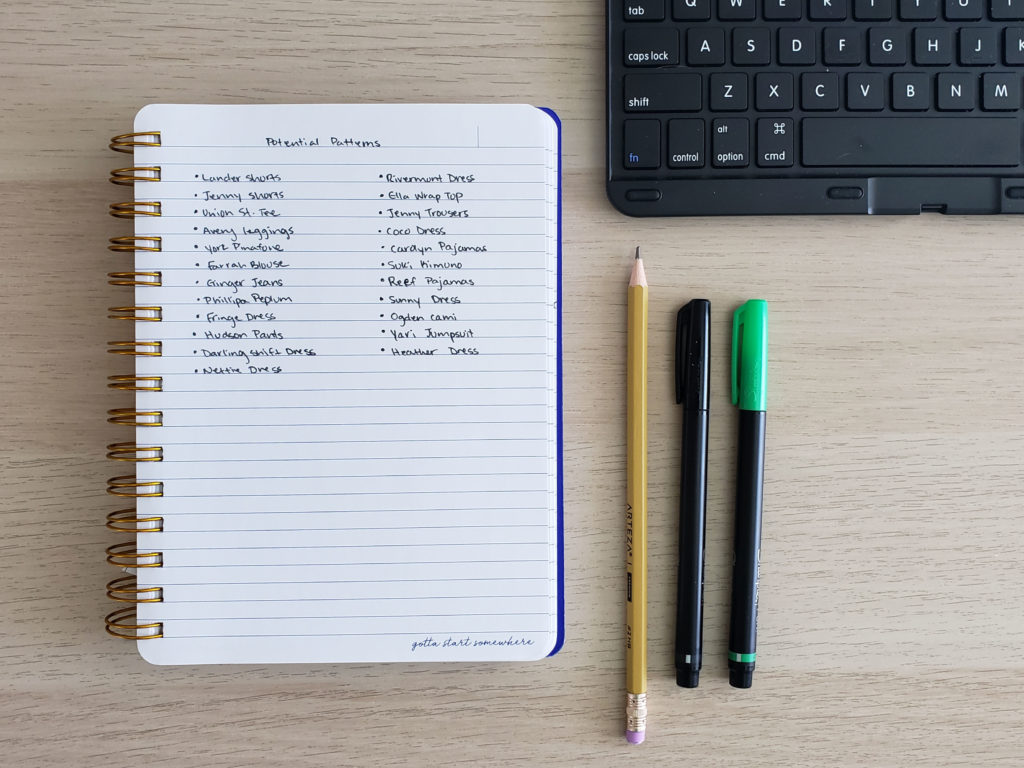 Potential Patterns
• Lander Shorts
• Jenny Shorts
• Union St. Tee
• Avery Leggings
• York Pinafore
• Farrah Blouse
• Ginger Jeans
• Phillipa Peplum
• Fringe Dress
• Hudson Pants
• Darling Shift Dress
• Nettie Dress
• Rivermont Dress
• Ella Wrap Top
• Jenny Trousers
• Coco Dress
• Carolyn Pajamas
• Suki Kimono
• Reef Pajamas
• Sunny Dress
• Ogden cami
• Yari Jumpsuit
• Heather Dress
gotta start somewhere
tab Q W E R T Y U I
caps lock A S D F G H J K
shift Z X C V B N M
fn control alt option ⌘ cmd
ARTEZA
#2HB